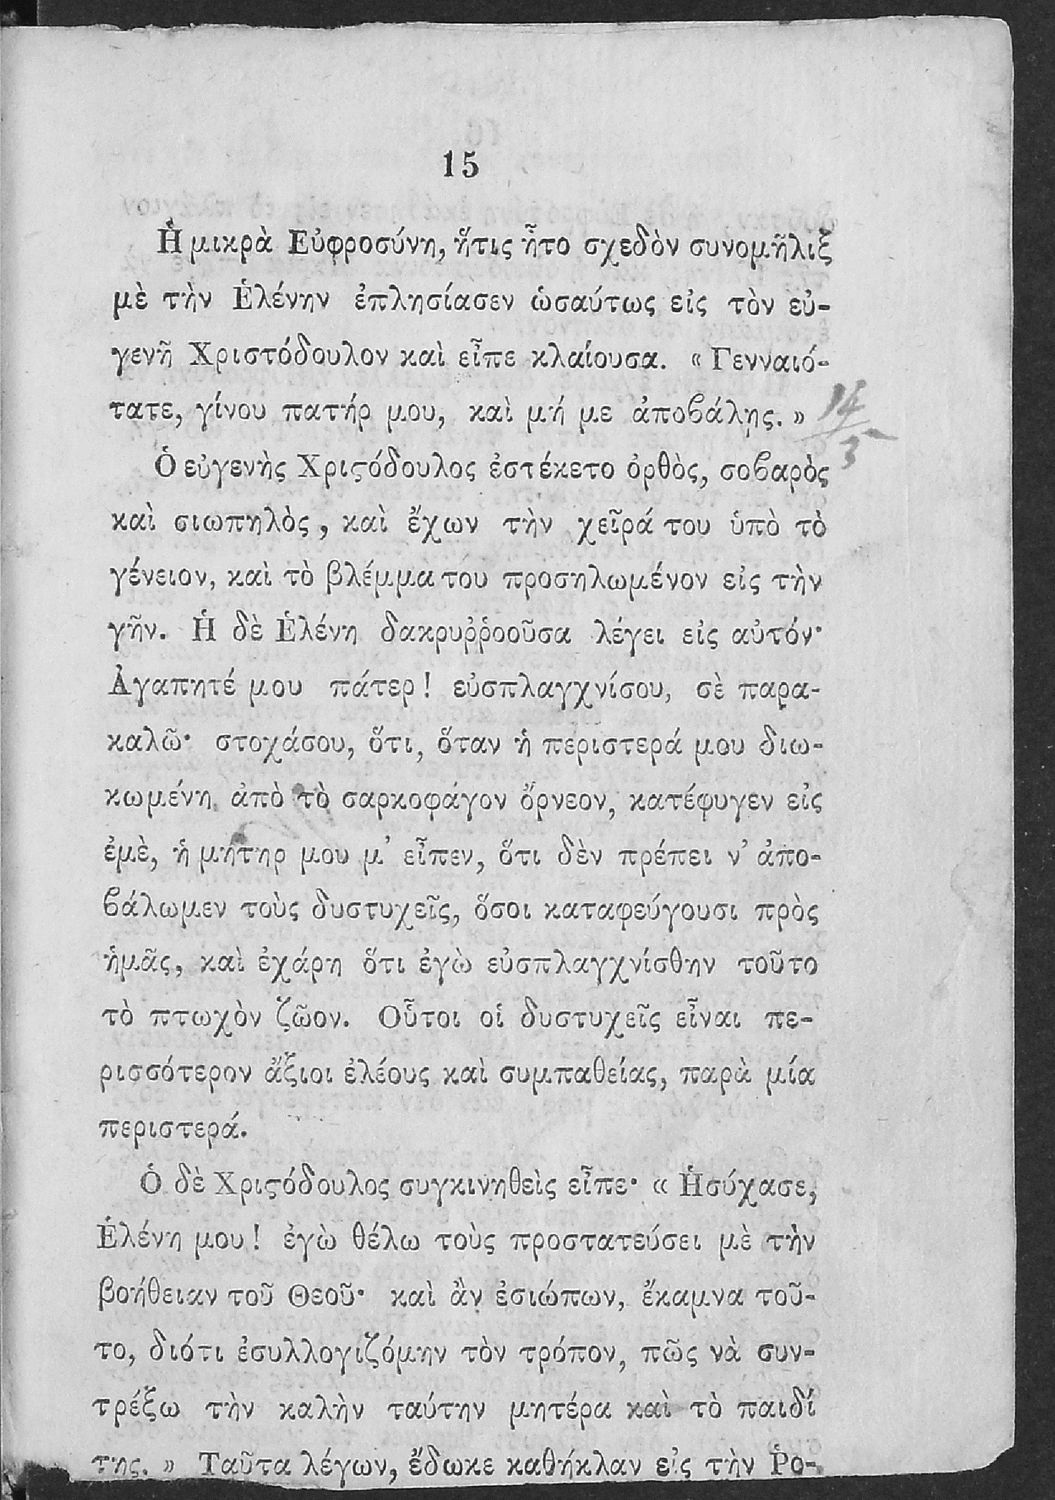 15
Ἡ μικρὰ Εὐφροσύνη, ἥτις ἦτο σχεδὸν συνομῆλιξ
μὲ τὴν Ἑλένην ἐπλησίασεν ὡσαύτως εἰς τὸν εὐ-
γενῆ Χριστόδουλον καὶ εἶπε κλαίουσα. « Γενναιό-
τατε, γίνου πατήρ μου, καὶ μή με ἀποβάλῃς. » 14/3
Ὁ εὐγενὴς Χριϛόδουλος ἐστέκετο ὀρθὸς, σοβαρὸς
καὶ σιωπηλὸς, καὶ ἔχων τὴν χεῖρά του ὑπὸ τὸ
γένειον, καὶ τὸ βλέμμα του προσηλωμένον εἰς τὴν
γῆν. Ἡ δὲ Ἑλένη δακρυῤῥοοῦσα λέγει εἰς αὐτόν·
Ἀγαπητέ μου πάτερ! εὐσπλαγχνίσου, σὲ παρα-
καλῶ· στοχάσου, ὅτι, ὅταν ἡ περιστερά μου διω-
κωμένη ἀπὸ τὸ σαρκοφάγον ὄρνεον, κατέφυγεν εἰς
ἐμὲ, ἡ μήτηρ μου μ' εἶπεν, ὅτι δὲν πρέπει ν' ἀπο-
βάλωμεν τοὺς δυστυχεῖς, ὅσοι καταφεύγουσι πρὸς
ἡμᾶς, καὶ ἐχάρη ὅτι ἐγὼ εὐσπλαγχνίσθην τοῦτο
τὸ πτωχὸν ζῶον. Οὗτοι οἱ δυστυχεῖς εἶναι πε-
ρισσότερον ἄξιοι ἐλέους καὶ συμπαθείας, παρὰ μία
περιστερά.
Ὁ δὲ Χριϛόδουλος συγκινηθεὶς εἶπε· « Ἡσύχασε,
Ἑλένη μου! ἐγὼ θέλω τοὺς προστατεύσει μὲ τὴν
βοήθειαν τοῦ Θεοῦ· καὶ ἂν ἐσιώπων, ἔκαμνα τοῦ-
το, διότι ἐσυλλογιζόμην τὸν τρόπον, πῶς νὰ συν-
τρέξω τὴν καλὴν ταύτην μητέρα καὶ τὸ παιδί
της. » Ταῦτα λέγων, ἔδωκε καθήκλαν εἰς τὴν Ῥο-